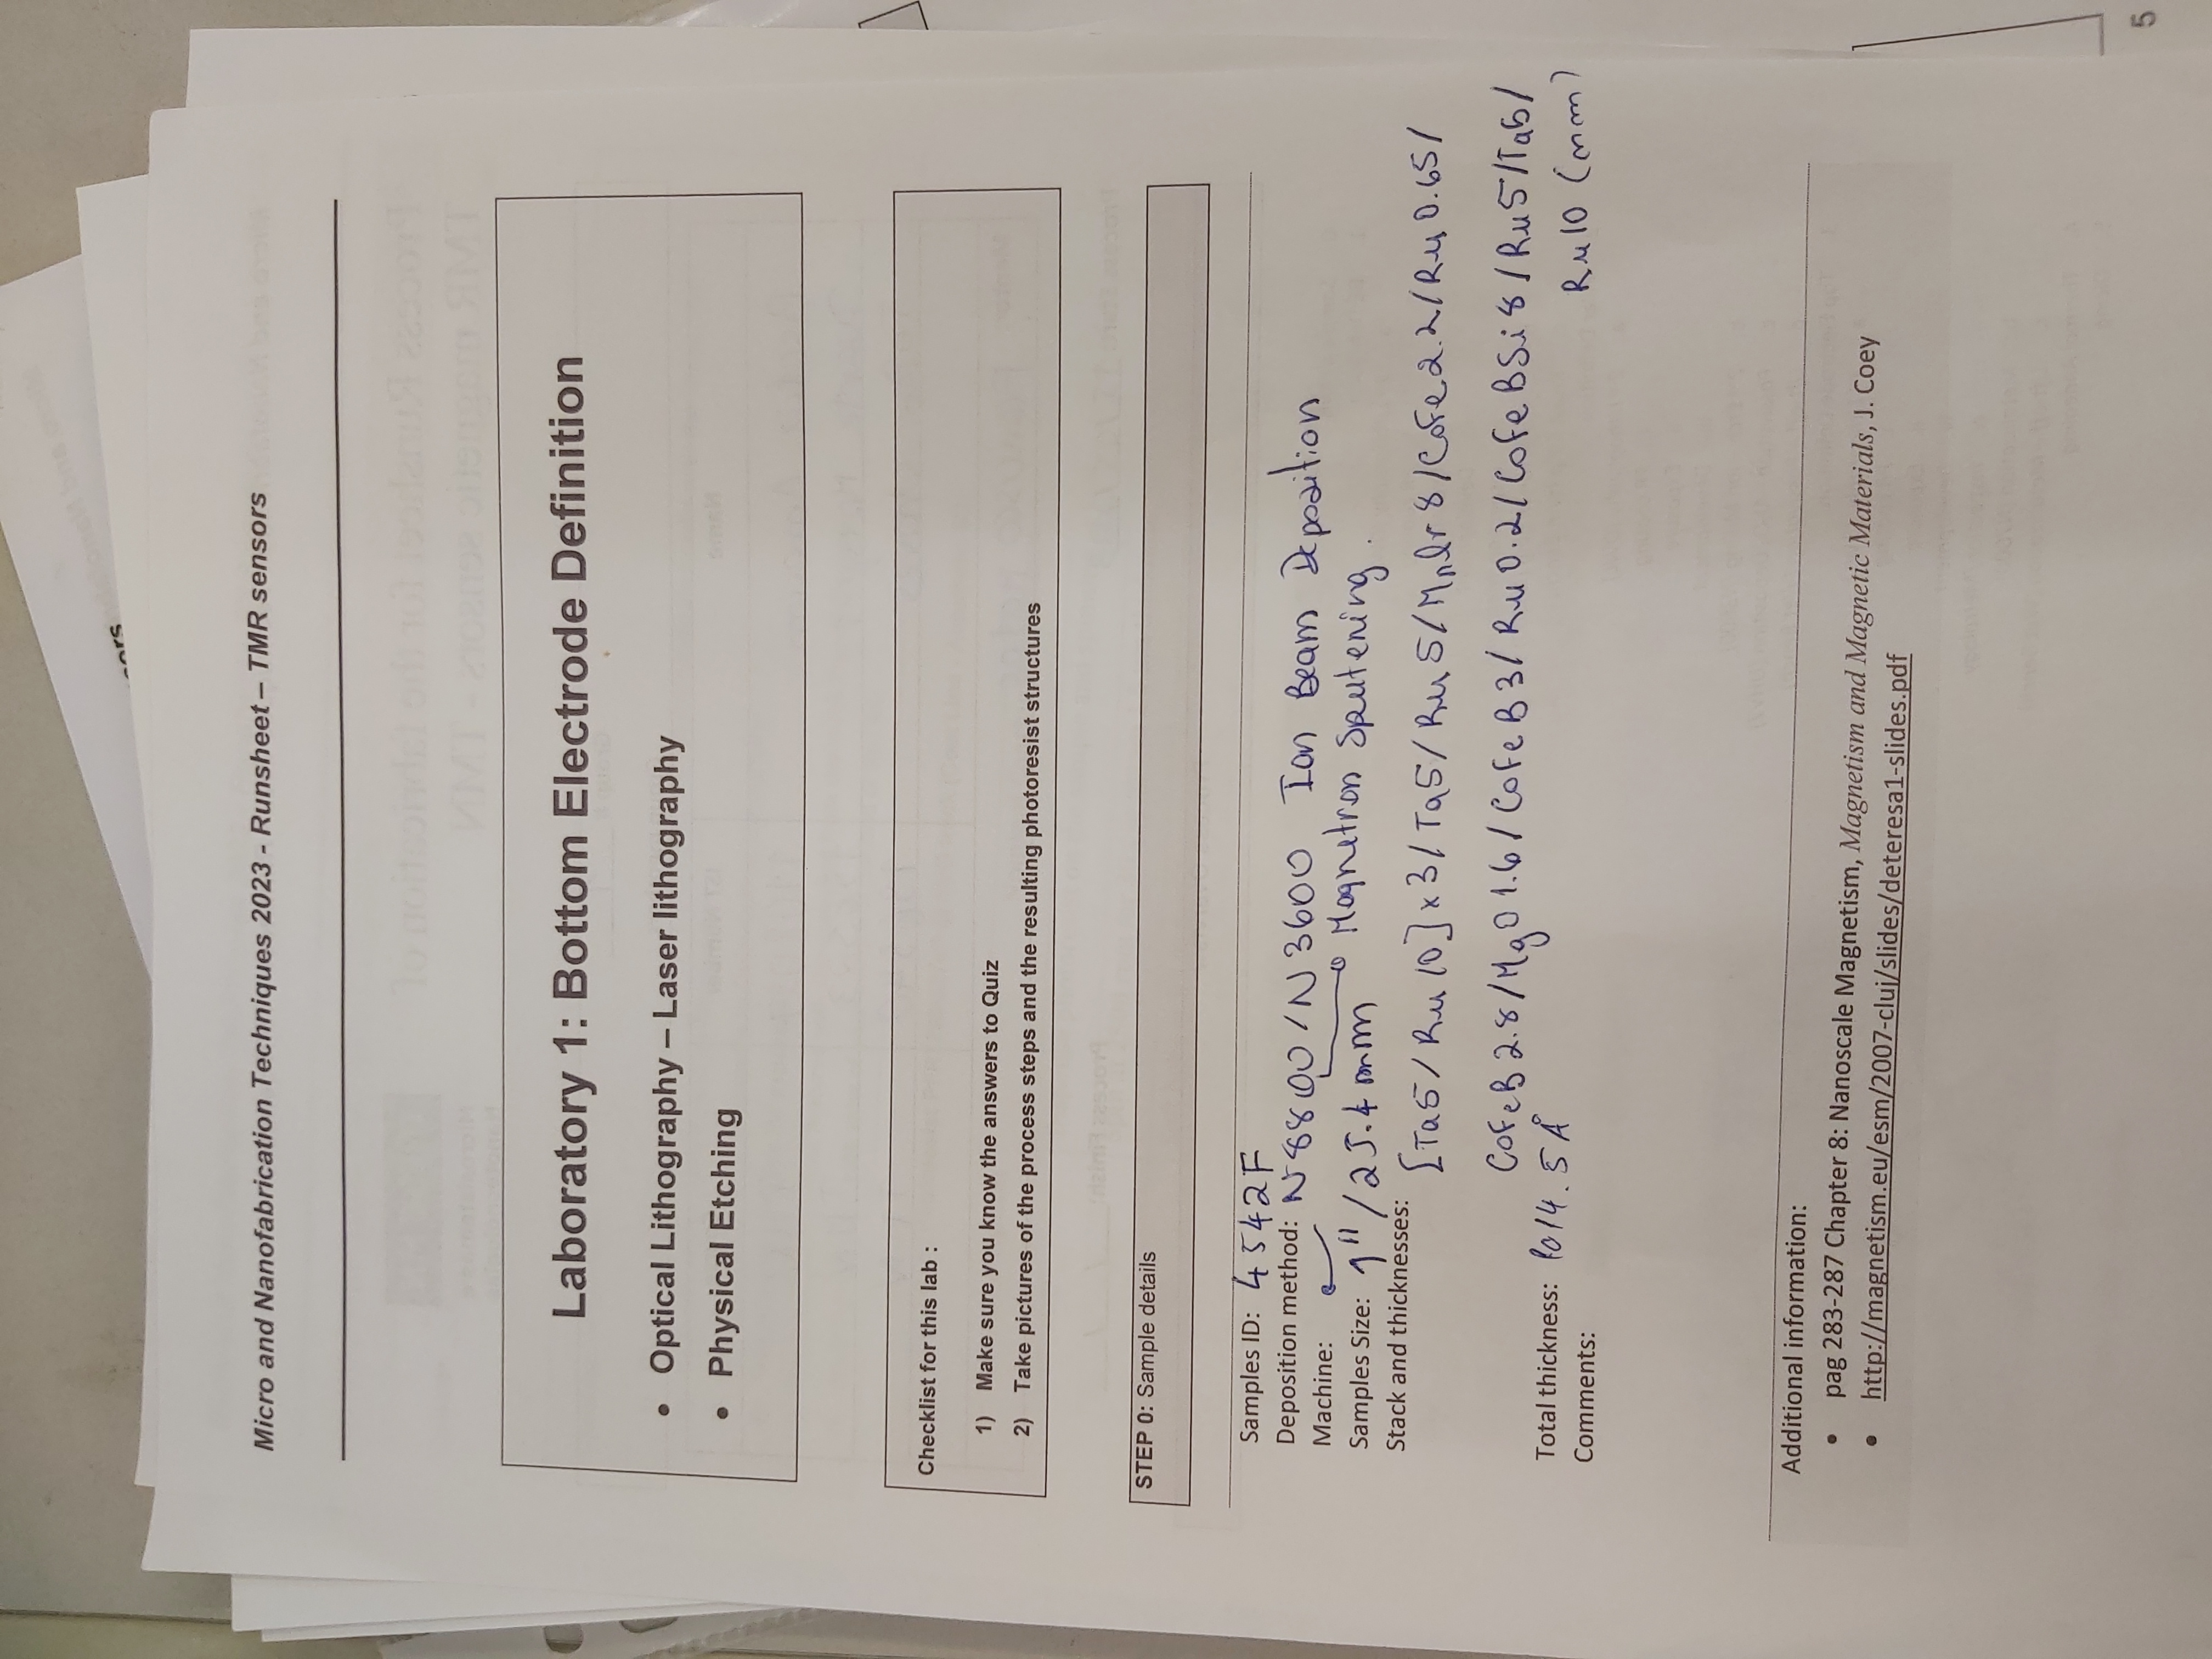 ors
Micro and Nanofabrication Techniques 2023 - Runsheet – TMR sensors
Laboratory 1: Bottom Electrode Definition
• Optical Lithography – Laser lithography
• Physical Etching
Checklist for this lab :
1) Make sure you know the answers to Quiz
2) Take pictures of the process steps and the resulting photoresist structures
STEP 0: Sample details
Samples ID: 4542F
Deposition method: N8800 / N3600 Ion Beam Deposition
Machine: Magnetron Sputening.
Samples Size: 1" / 25.4 mm
Stack and thicknesses:
[Ta5/ Ru 10] x 3/ Ta5/ Ru 5/ MnIr 8/ CoFe 2.2/ Ru 0.65/
CoFeB 2.8/ MgO 1.6/ CoFeB 3/ Ru 0.2/ CoFeBSi 8/ Ru5/Ta5/
Ru10 (nm)
Total thickness: 1014.5 Å
Comments:
Additional information:
• pag 283-287 Chapter 8: Nanoscale Magnetism, Magnetism and Magnetic Materials, J. Coey
• http://magnetism.eu/esm/2007-cluj/slides/deteresa1-slides.pdf
5